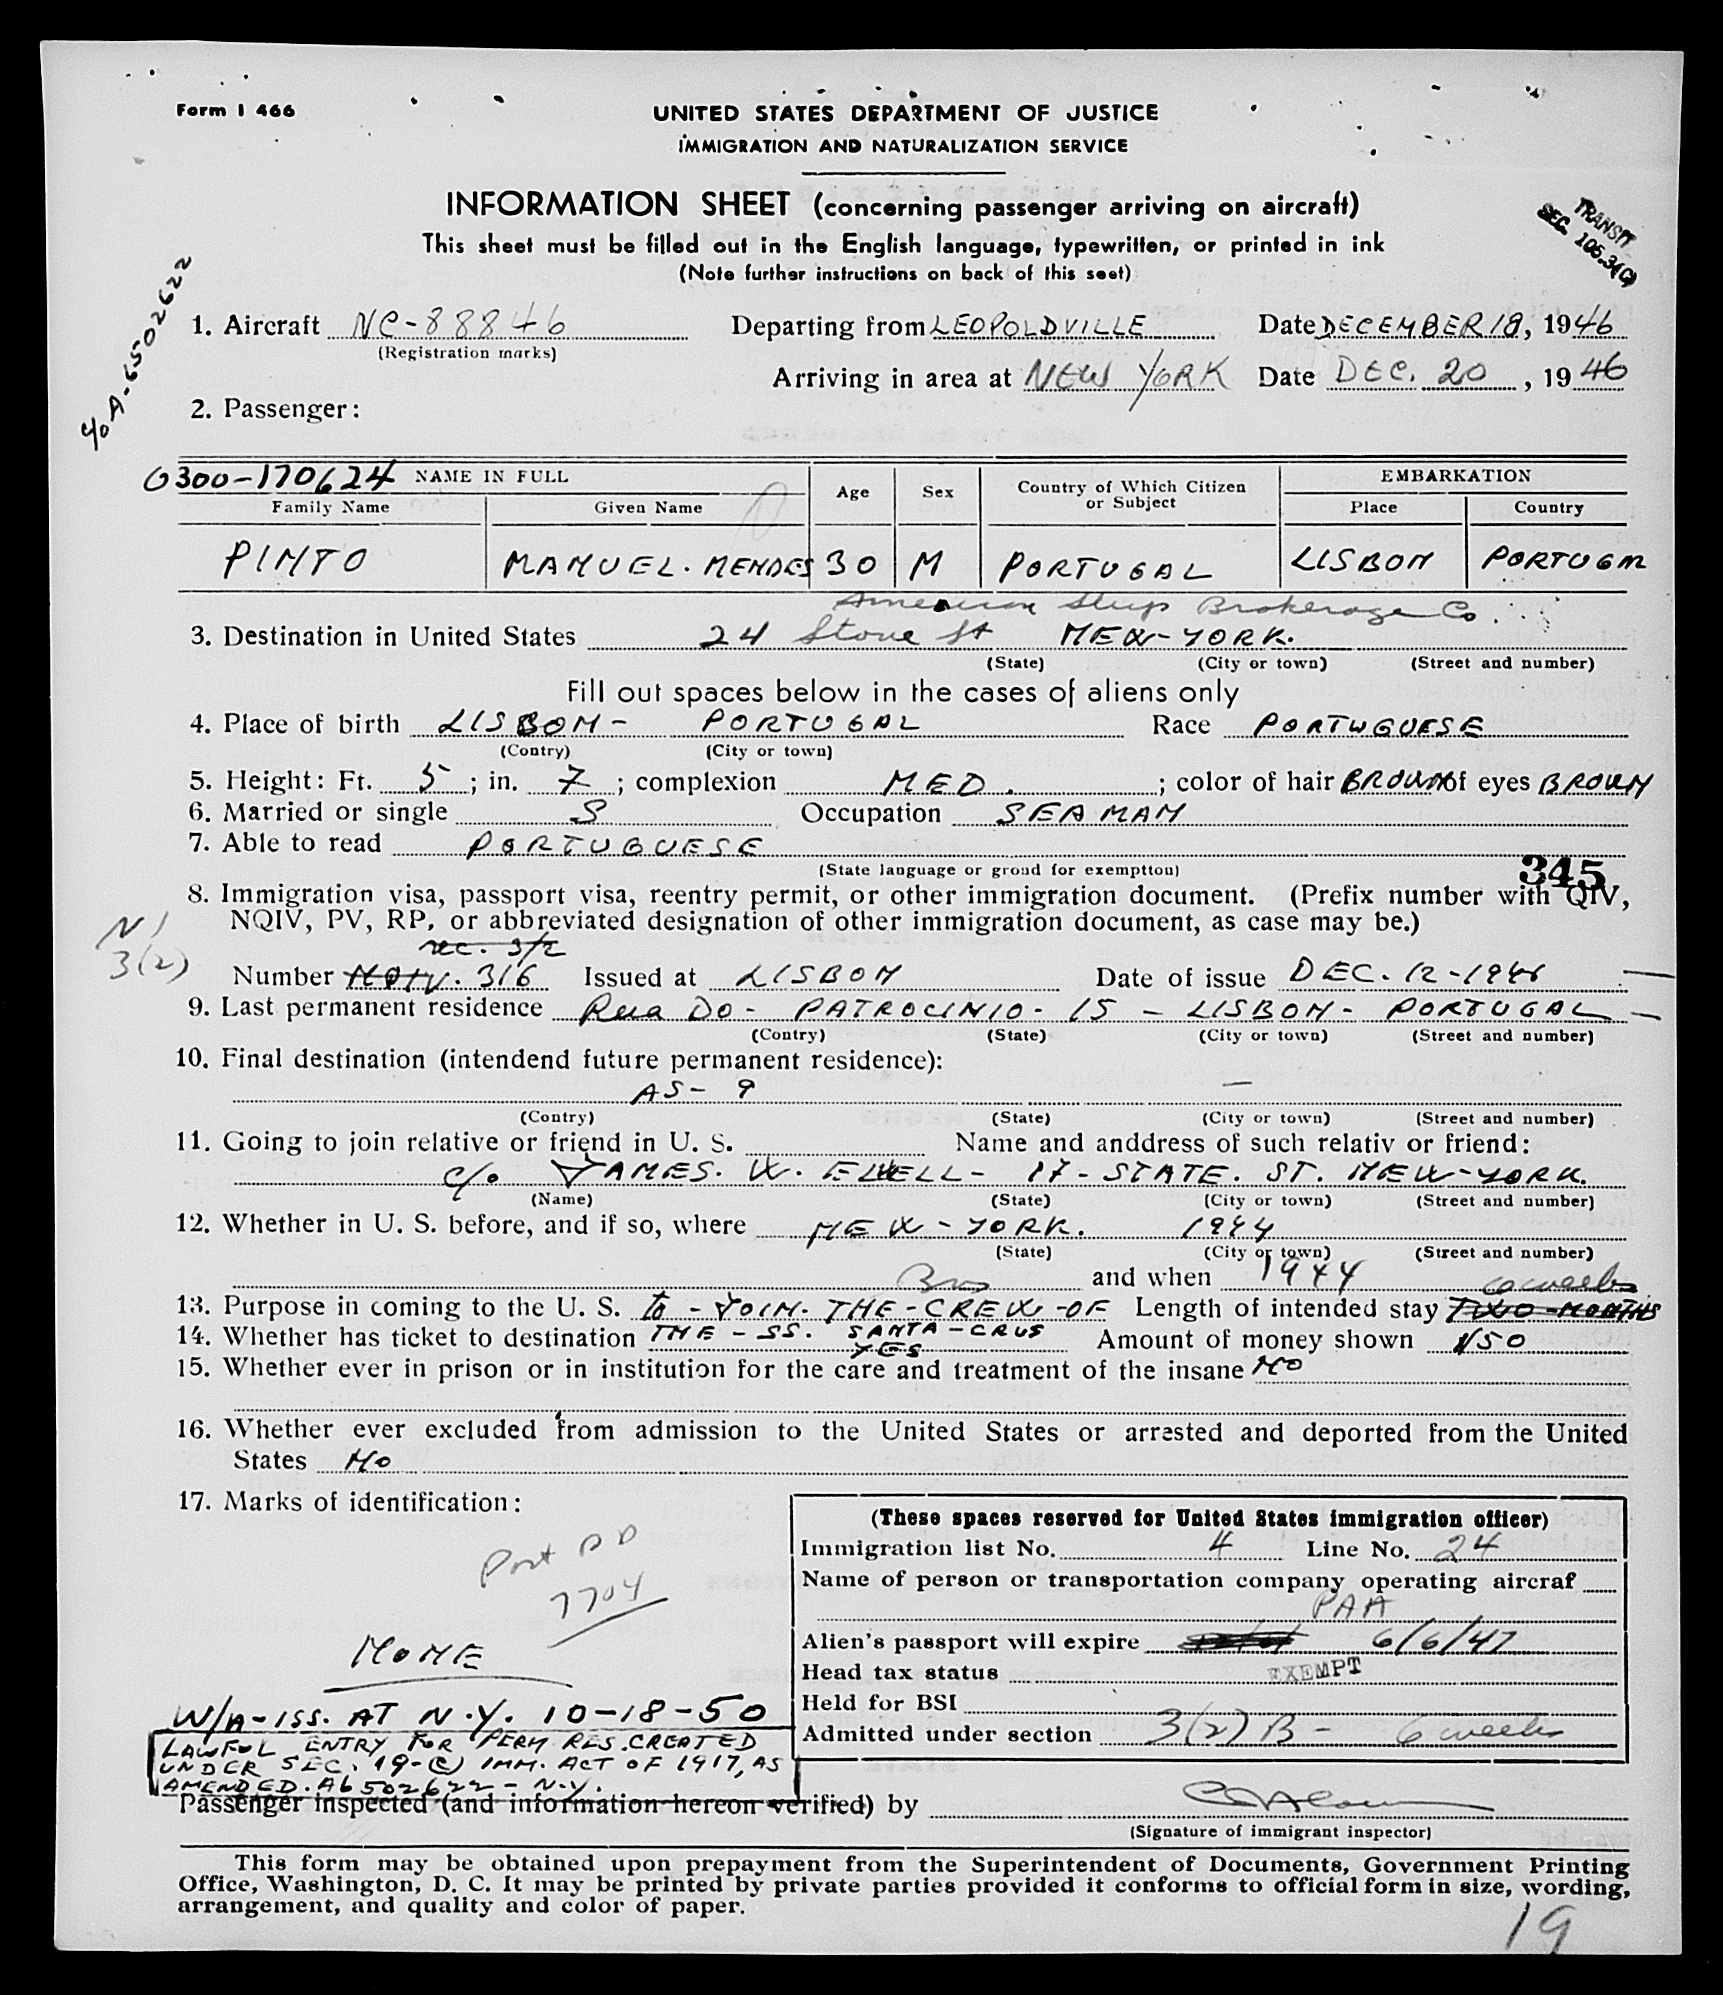 Form I 466
UNITED STATES DEPARTMENT OF JUSTICE
IMMIGRATION AND NATURALIZATION SERVICE
INFORMATION SHEET (concerning passenger arriving on aircraft)
This sheet must be filled out in the English language, typewritten, or printed in ink
(Note further instructions on back of this seet)
TRANSIT
SEC. 105.3(C)
c/o A-6502622
1. Aircraft NC-88846 Departing from LEOPOLDVILLE Date DECEMBER 18, 1946
(Registration marks)
Arriving in area at NEW YORK Date DEC. 20, 1946
2. Passenger:
0300-170624 NAME IN FULL Age Sex Country of Which Citizen or Subject EMBARKATION
Family Name Given Name Place Country
PINTO MANUEL. MENDES 30 M PORTUGAL LISBON PORTUGAL
American Ship Brokerage Co.
3. Destination in United States 24 Stone St NEW-YORK.
(State) (City or town) (Street and number)
Fill out spaces below in the cases of aliens only
4. Place of birth LISBON - PORTUGAL Race PORTUGUESE
(Contry) (City or town)
5. Height: Ft. 5; in. 7; complexion MED.; color of hair BROWN of eyes BROWN
6. Married or single S Occupation SEAMAN
7. Able to read PORTUGUESE
(State language or groud for exemption)
345
8. Immigration visa, passport visa, reentry permit, or other immigration document. (Prefix number with QIV,
NQIV, PV, RP, or abbreviated designation of other immigration document, as case may be.)
N1
3(2)
sec. 3/2
Number NQIV. 316 Issued at LISBON Date of issue DEC-12-1946
9. Last permanent residence Rua DO - PATROCINIO - 15 - LISBON - PORTUGAL -
(Contry) (State) (City or town) (Street and number)
10. Final destination (intendend future permanent residence):
AS - 9 —
(Contry) (State) (City or town) (Street and number)
11. Going to join relative or friend in U. S. Name and anddress of such relativ or friend:
c/o JAMES. W. ELWELL - 17 - STATE. ST. NEW-YORK.
(Name) (State) (City or town) (Street and number)
12. Whether in U. S. before, and if so, where NEW-YORK. 1944
(State) (City or town) (Street and number)
and when 1944 6 weeks
13. Purpose in coming to the U. S. to - JOIN. THE - CREW - OF Length of intended stay TWO-MONTHS
14. Whether has ticket to destination THE - SS. SANTA - CRUS Amount of money shown $50
YES
15. Whether ever in prison or in institution for the care and treatment of the insane NO
16. Whether ever excluded from admission to the United States or arrested and deported from the United
States NO
17. Marks of identification:
7704
NONE
(These spaces reserved for United States immigration officer)
Immigration list No. 4 Line No. 24
Name of person or transportation company operating aircraf
PAA
Alien's passport will expire 6/6/47
Head tax status EXEMPT
Held for BSI
Admitted under section 3(2) B - 6 weeks
W/A-ISS. AT N.Y. 10-18-50
LAWFUL ENTRY FOR PERM RES. CREATED
UNDER SEC. 19-(C) IMM. ACT OF 1917, AS
AMENDED. A6502622 - N.Y.
Passenger inspected (and information hereon verified) by
(Signature of immigrant inspector)
This form may be obtained upon prepayment from the Superintendent of Documents, Government Printing
Office, Washington, D. C. It may be printed by private parties provided it conforms to official form in size, wording,
arrangement, and quality and color of paper.
19